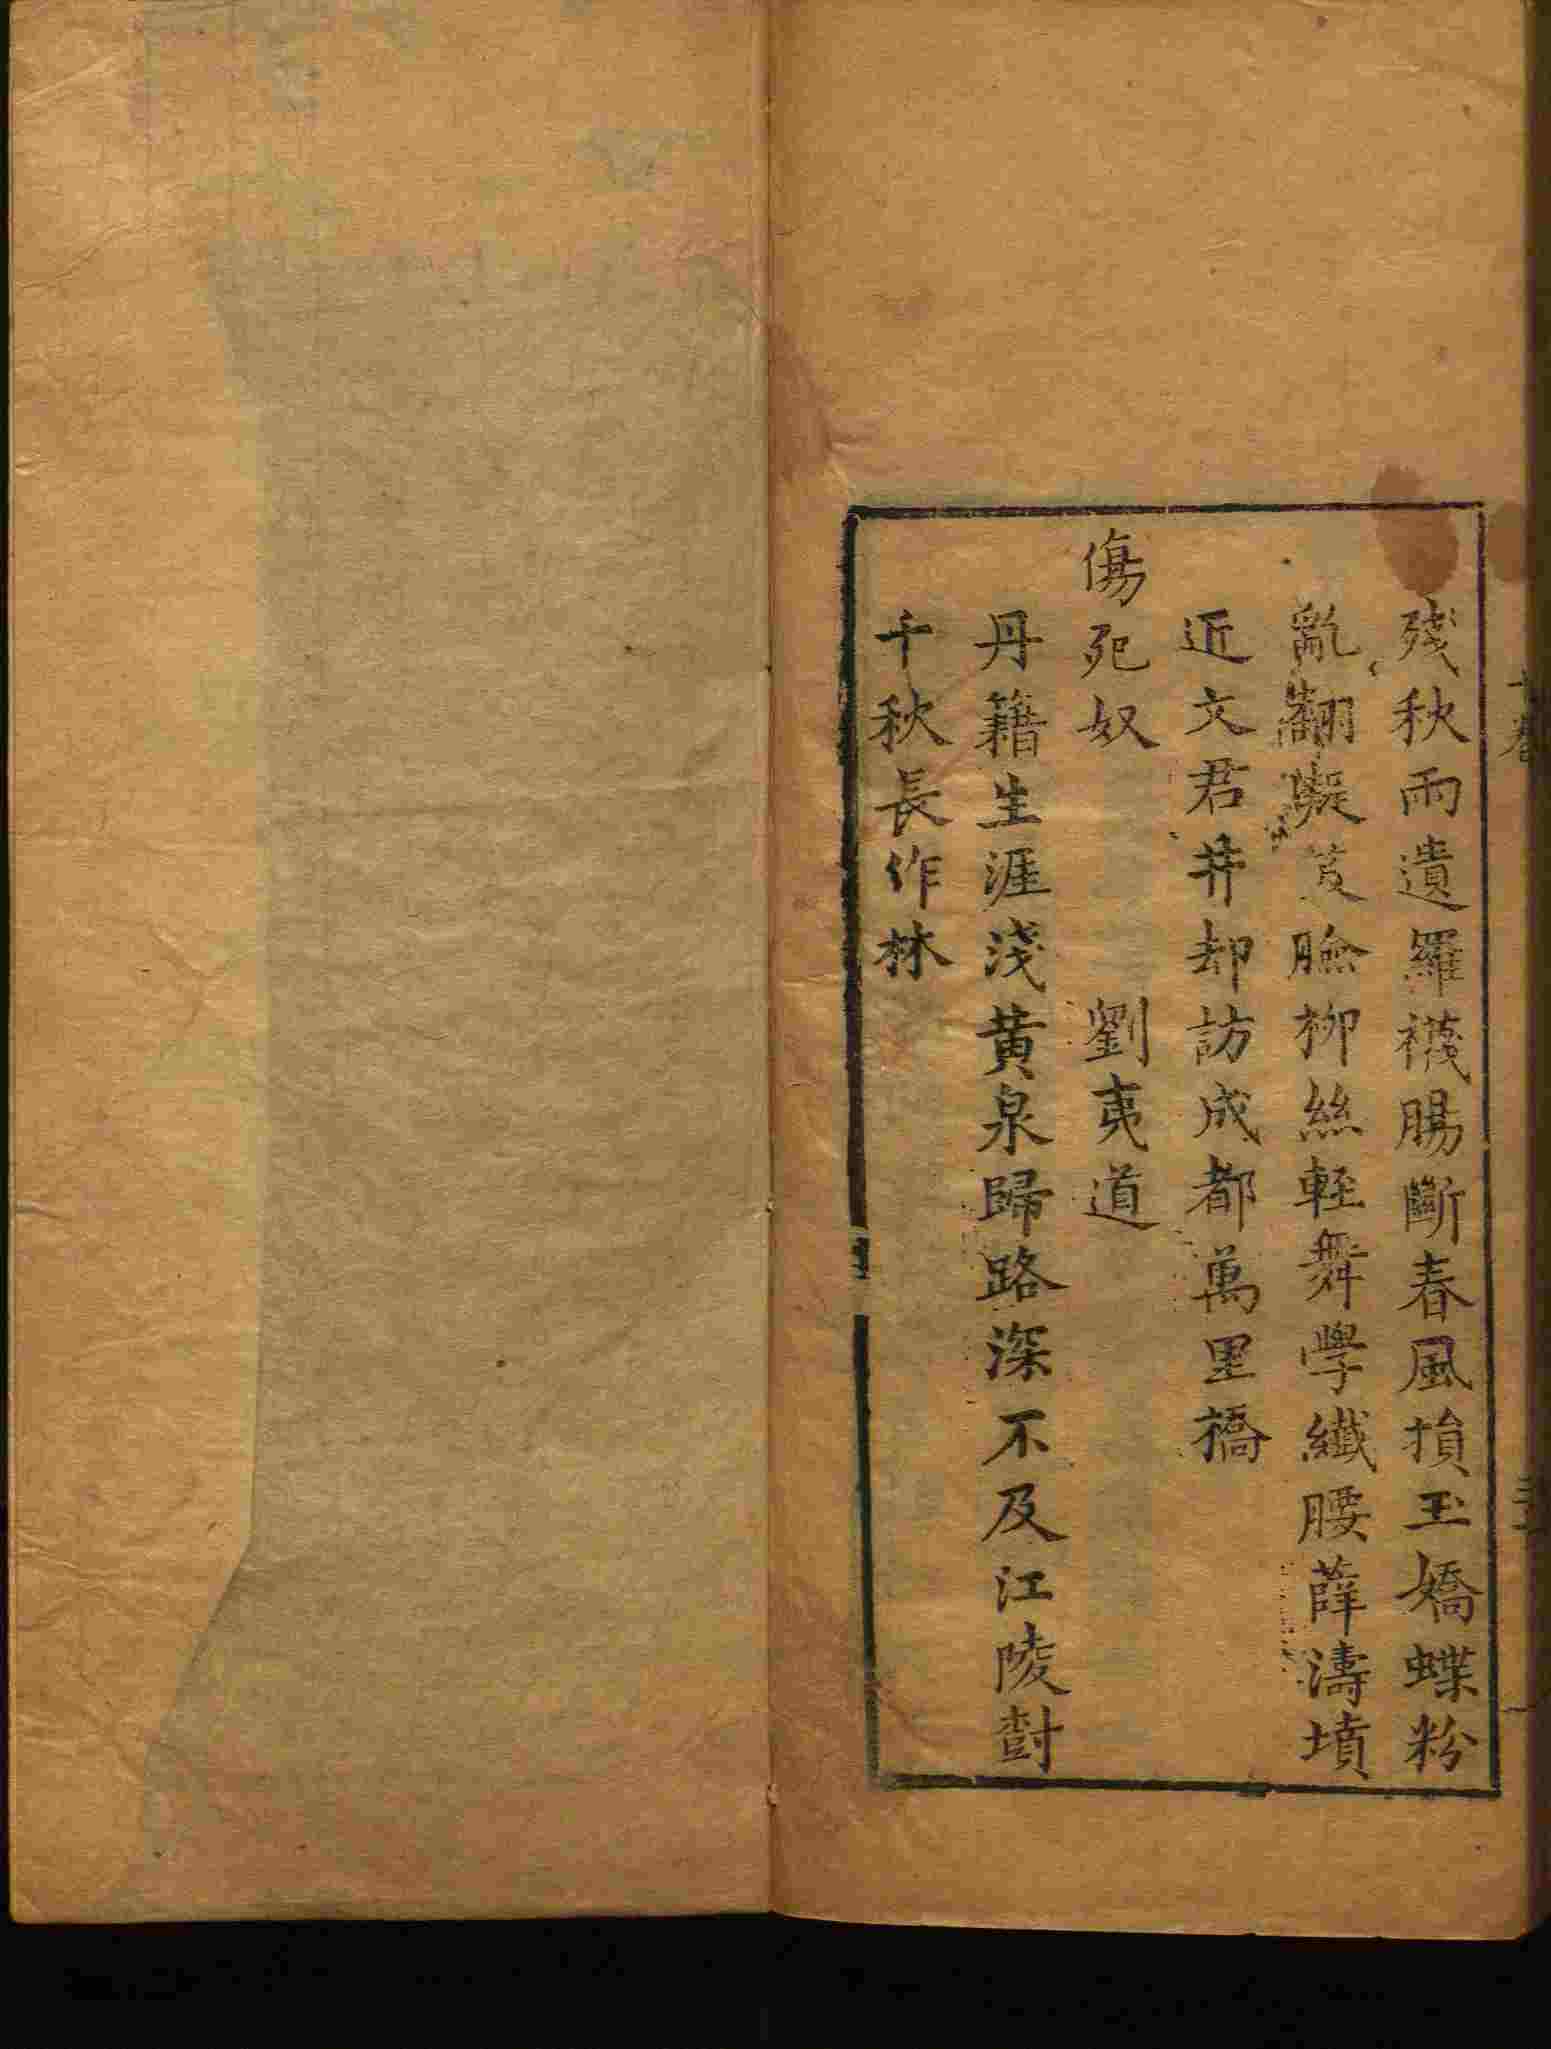 殘秋雨遺羅襪腸斷春風損玉嬌蝶粉
亂翻凝笑臉柳絲輕舞學纖腰薛濤墳
近文君井却訪成都萬里橋
傷死奴　劉夷道
丹籍生涯淺黄泉歸路深不及江陵樹
千秋長作林